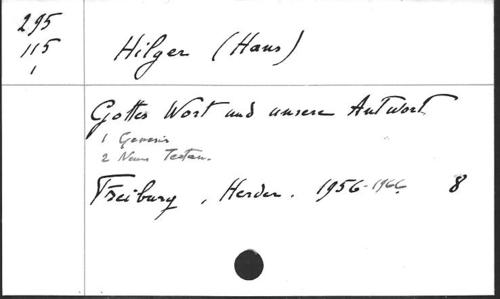 295
115
1
Hilger (Hans)
Gottes Wort und unsere Antwort
1 Genesis
2 Neues Testam.
Freiburg, Herder. 1956-1966 8